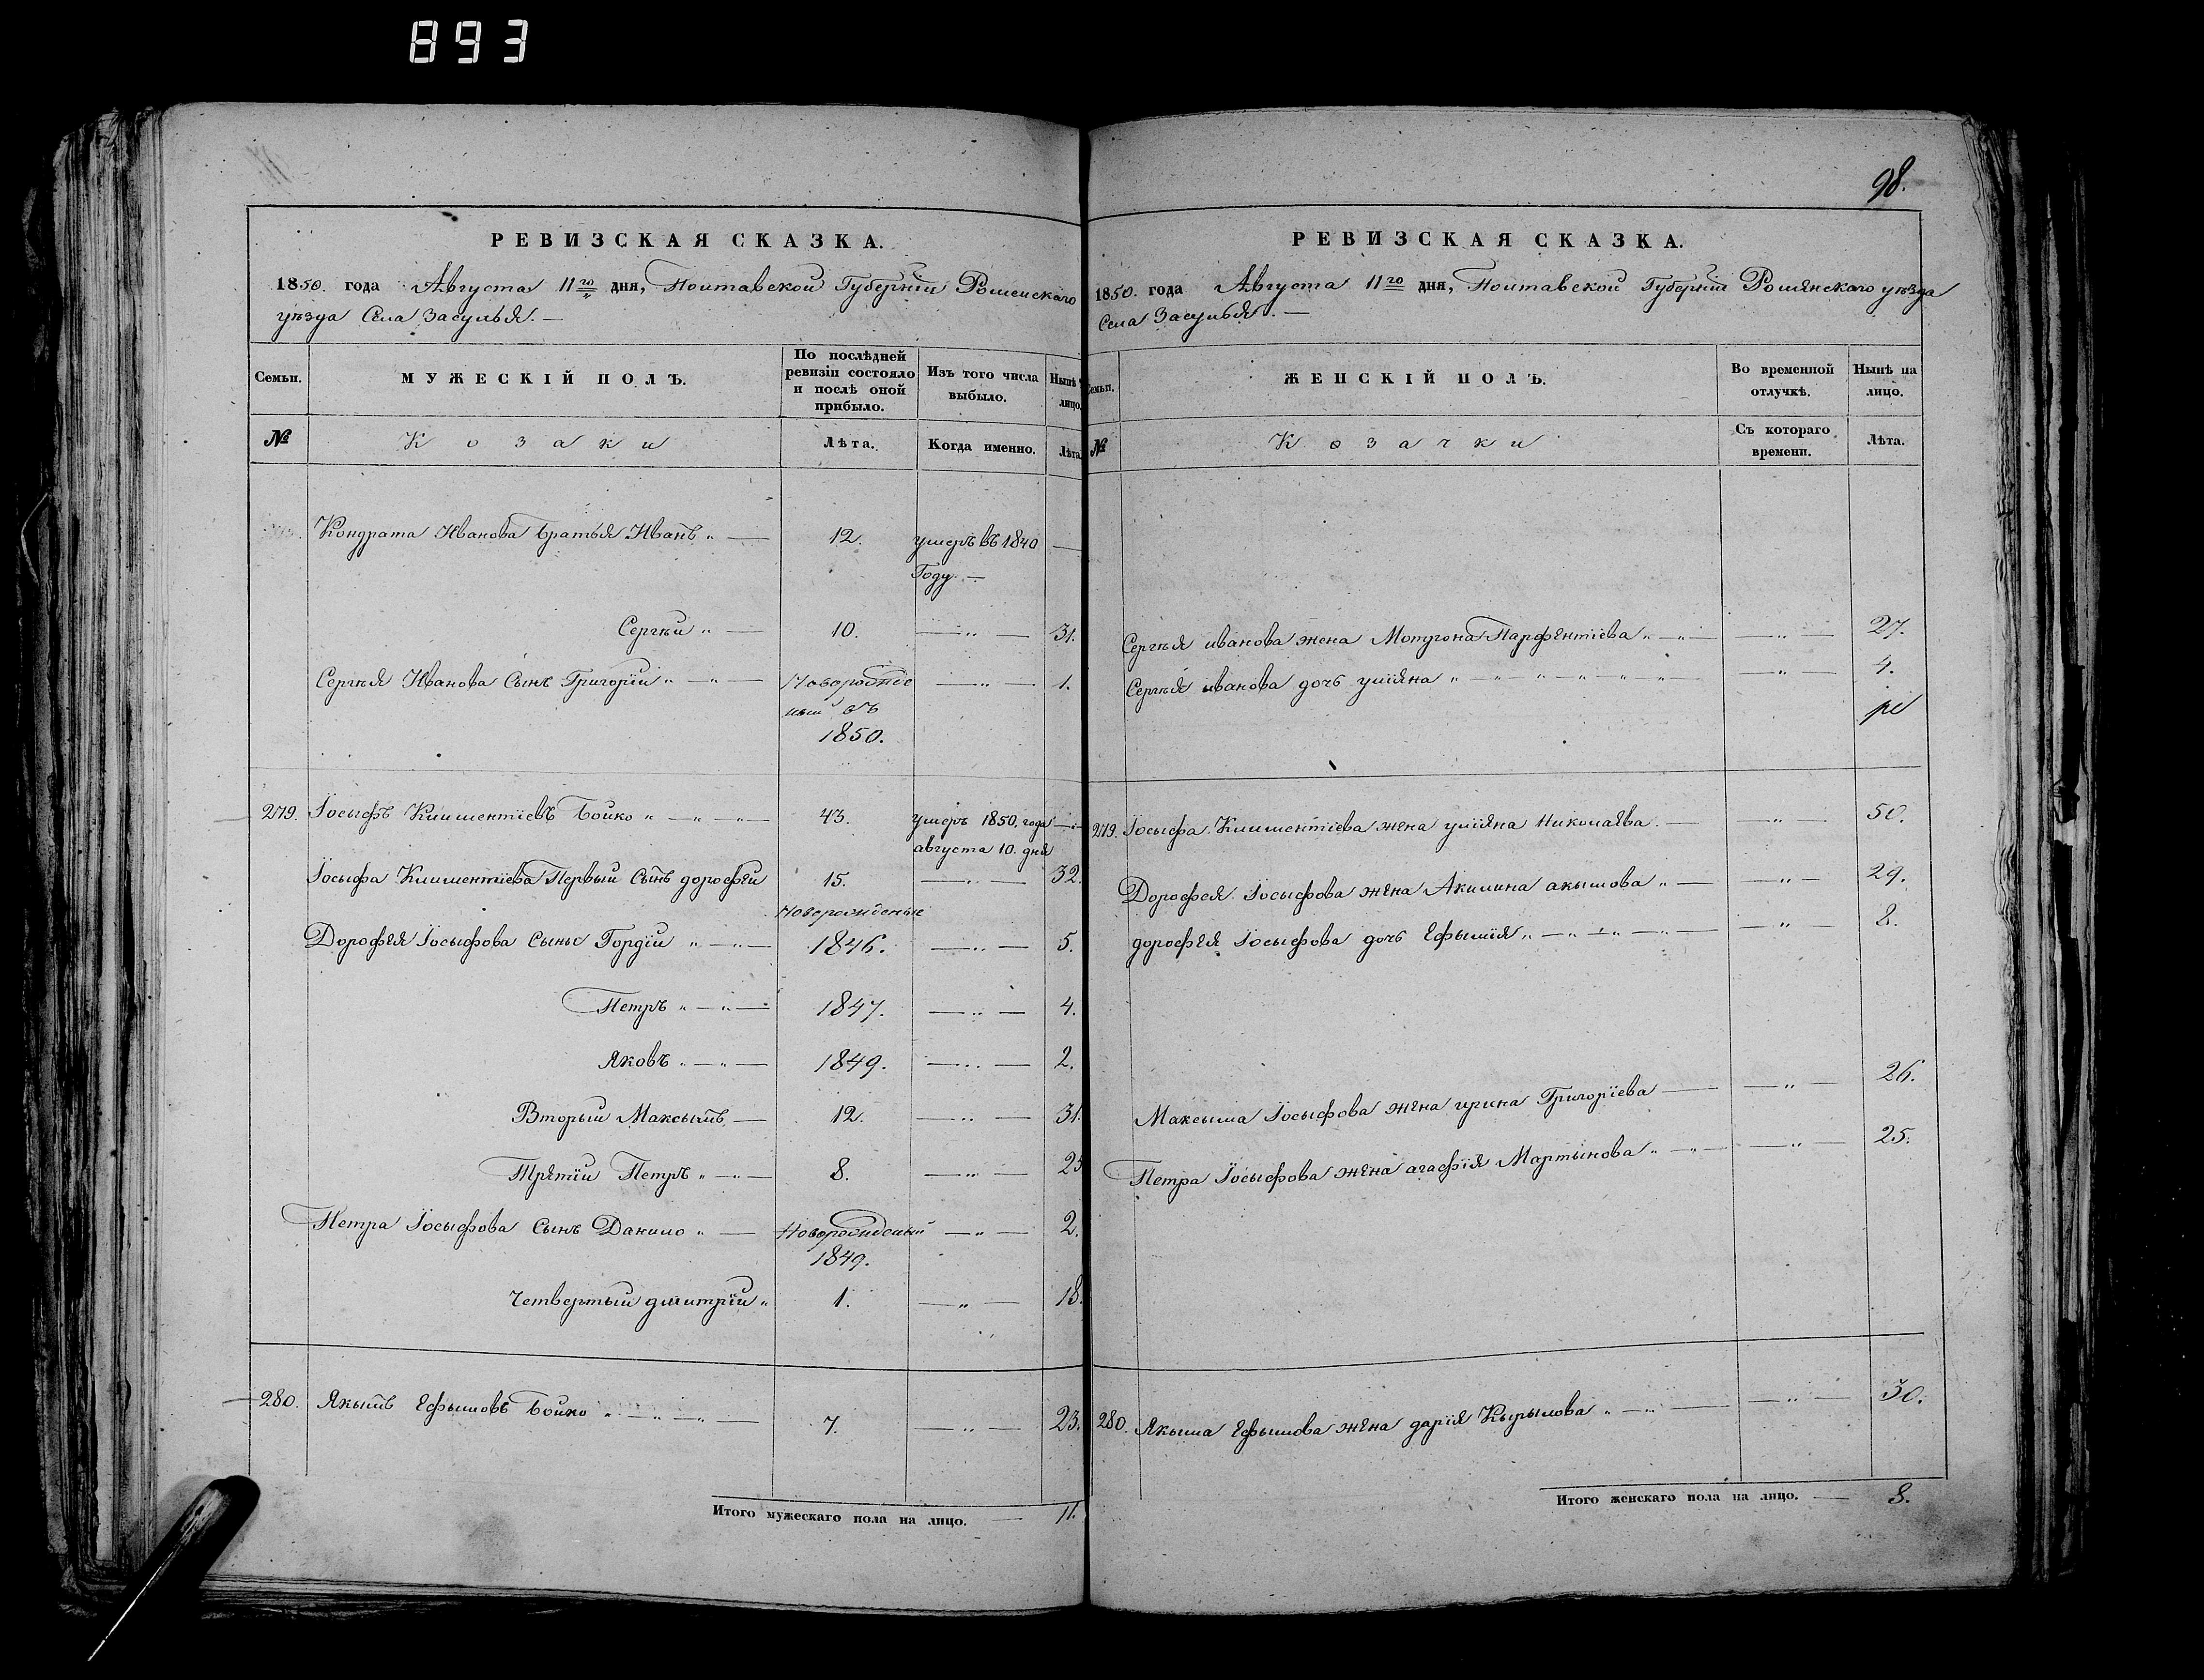 893
98.
РЕВИЗСКАЯ СКАЗКА.
1850. года Августа 11го дня, Полтавской Губерніи Роменскаго
уѣзда Села Засулья. —
Семьи. МУЖЕСКІЙ ПОЛЪ. По послѣдней ревизіи состояло и послѣ оной прибыло. Изъ того числа выбыло. Нынѣ лицо.
№ Козаки Лѣта. Когда именно. Лѣта.
Кондрата Иванова братья Иванъ „ — 12. умеръ въ 1840 —
Году. —
Сергѣй „ — 10. — „ — 31.
Сергѣя Иванова Сынъ Григорій „ — „ — Новорожде — „ — 1.
ный въ
1850.
279. Іосыфъ Климентіевъ Бойко „ — „ — „ — 43. умеръ 1850. года — „
августа 10. дня
Іосыфа Климентіева Первый Сынъ дорофей 15. — „ — 32.
Новорожденые
Дорофея Іосыфова Сыны Гордій „ — „ — 1846. — „ — 5.
Петръ „ — „ — 1847. — „ — 4.
Яковъ „ — „ — 1849. — „ — 2.
Вторый Максымъ — 12. — „ — 31.
Третій Петръ „ — „ — 8. — „ — 25
Петра Іосыфова Сынъ Данило „ — Новорожденый — „ — 2.
1849.
Четвертый дмитрій „ 1. — „ — 18.
280. Якымъ Ефымовъ Бойко „ — „ — „ — 7. — „ — 23.
Итого мужескаго пола на лицо. — 11.
РЕВИЗСКАЯ СКАЗКА.
1850. года Августа 11го дня, Полтавской Губерніи Ромянскаго уѣзда
Села Засулья. —
Семьи. ЖЕНСКІЙ ПОЛЪ. Во временной отлучкѣ. Нынѣ на лицо.
№ Козачки Съ котораго времени. Лѣта.
Сергѣя иванова жена Мотрона Парфентіева „ — „ — — „ — 27.
Сергѣя иванова дочь уліяна „ — „ — „ — „ — „ — — „ — 4.
279. Іосыфа Климентіева жена уліяна Николаева. — — „ — 50.
Дорофея Іосыфова жена Акилина акымова „ — — „ — 29.
дорофея Іосыфова дочь Ефымія „ — „ — „ — „ — — „ — 8.
Максыма Іосыфова жена ирина Григоріева — — „ — 26.
Петра Іосыфова жена агафія Мартынова „ — „ — — „ — 25.
280. Якыма Ефымова жена дарія Кырылова „ — „ — — „ — 30.
Итого женскаго пола на лицо. — 8.